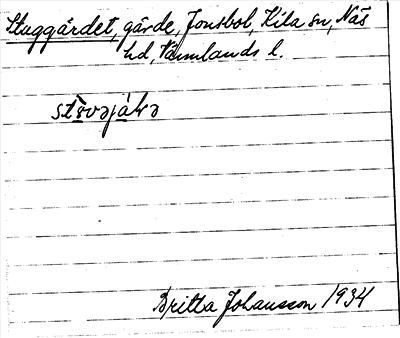 Stuggärdet, gärde, Jonsbol, Kila sn, Näs
hd, Värmlands l.
Britta Johansson 1934